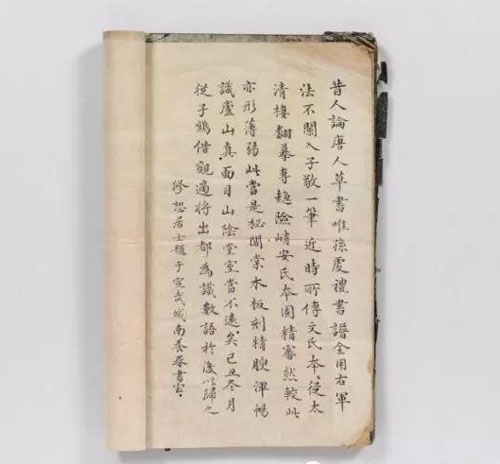 昔人論唐人草書唯孫虔禮書譜全用右軍
法不闌入子敬一筆近時所傳文氏本從太
清樓翻摹專趨險峭安氏本固精審然較此
亦形薄弱此當是秘閣棠木板刻精腴渾暢
識廬山真面目山陰堂室當不遠矣己丑冬月
從子鶴偕觀適將出都為識數語於後以歸之
修恕居士題于宣武城南養春書室